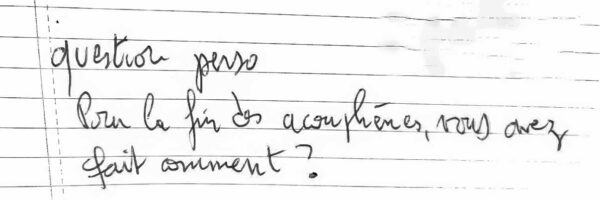 question perso
Pour la fin des acouphènes, vous avez
fait comment ?